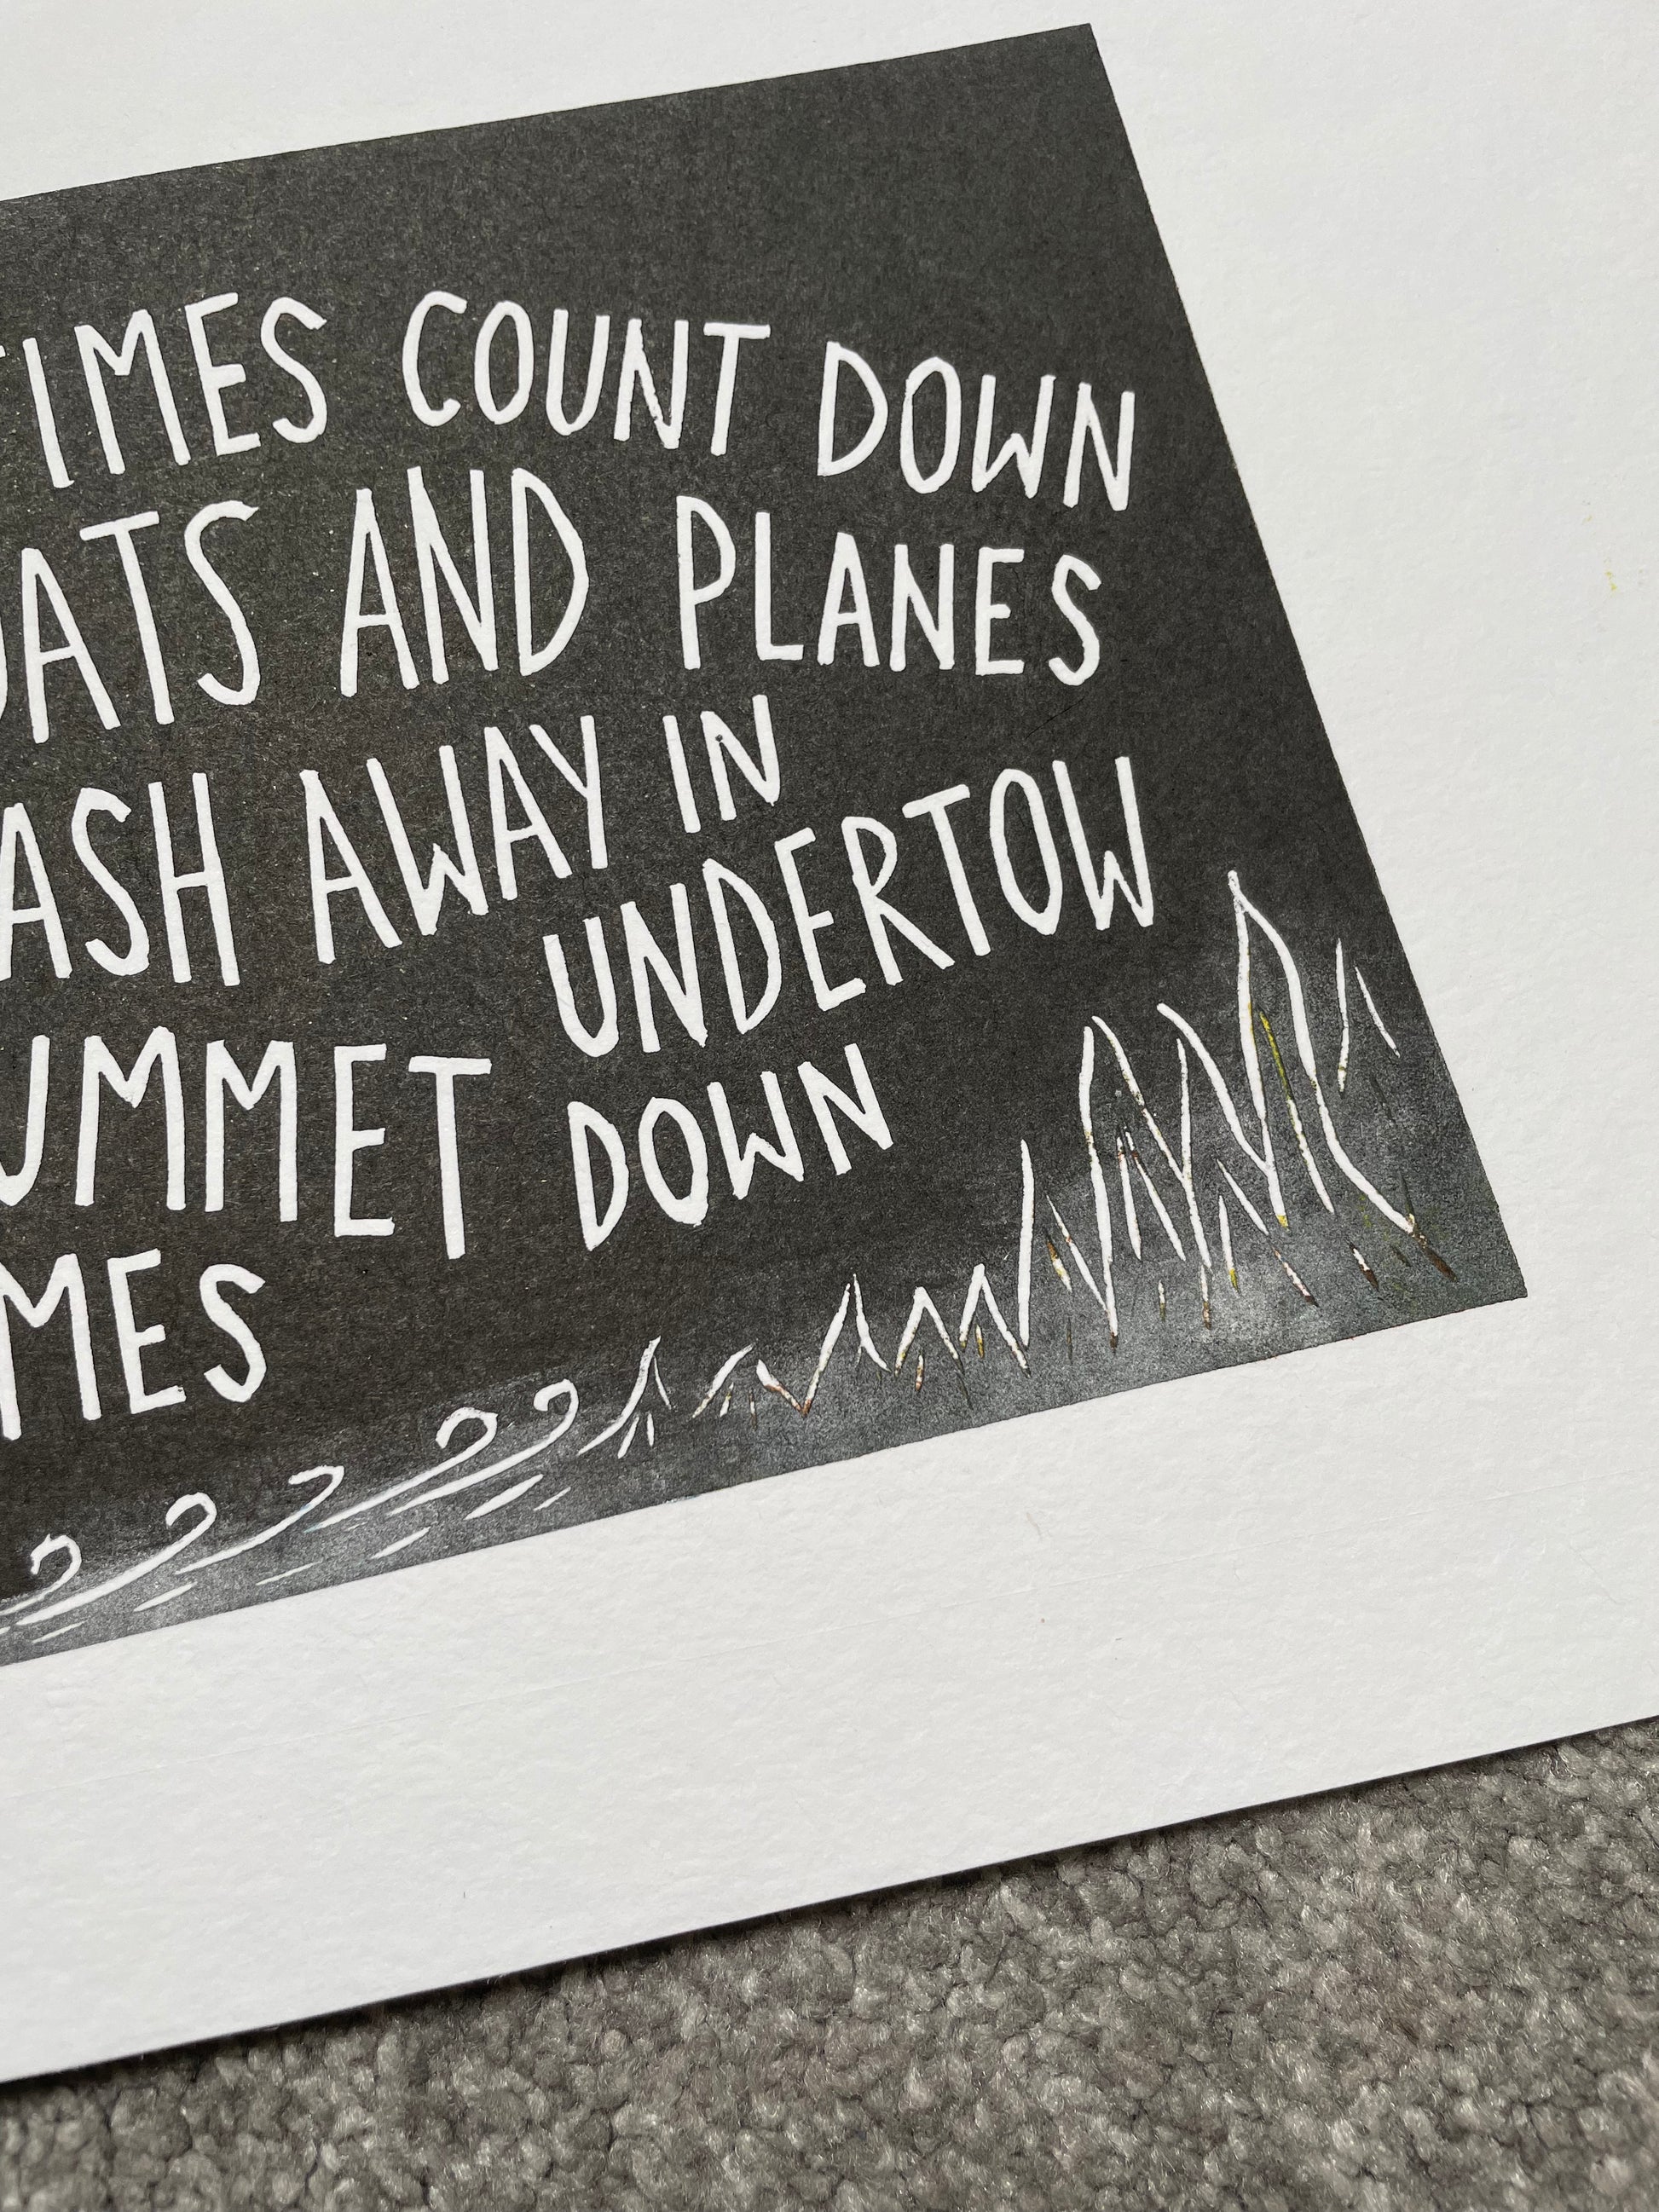 TIMES COUNT DOWN
OATS AND PLANES
ASH AWAY IN
UNDERTOW
UMMET DOWN
MES